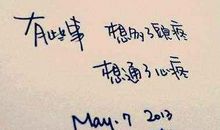 有些事 想多了頭疼
想通了心疼
May. 7 2013